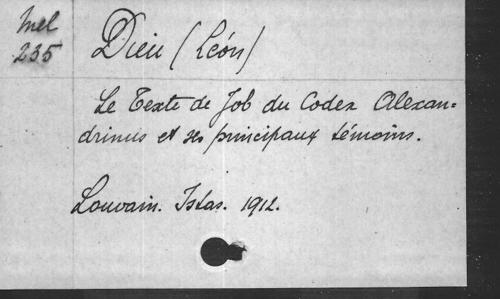 Mel
235
Dieu (Léon)
Le Texte de Job du Codex Alexan=
drinus et ses principaux témoins.
Louvain. Istas. 1912.